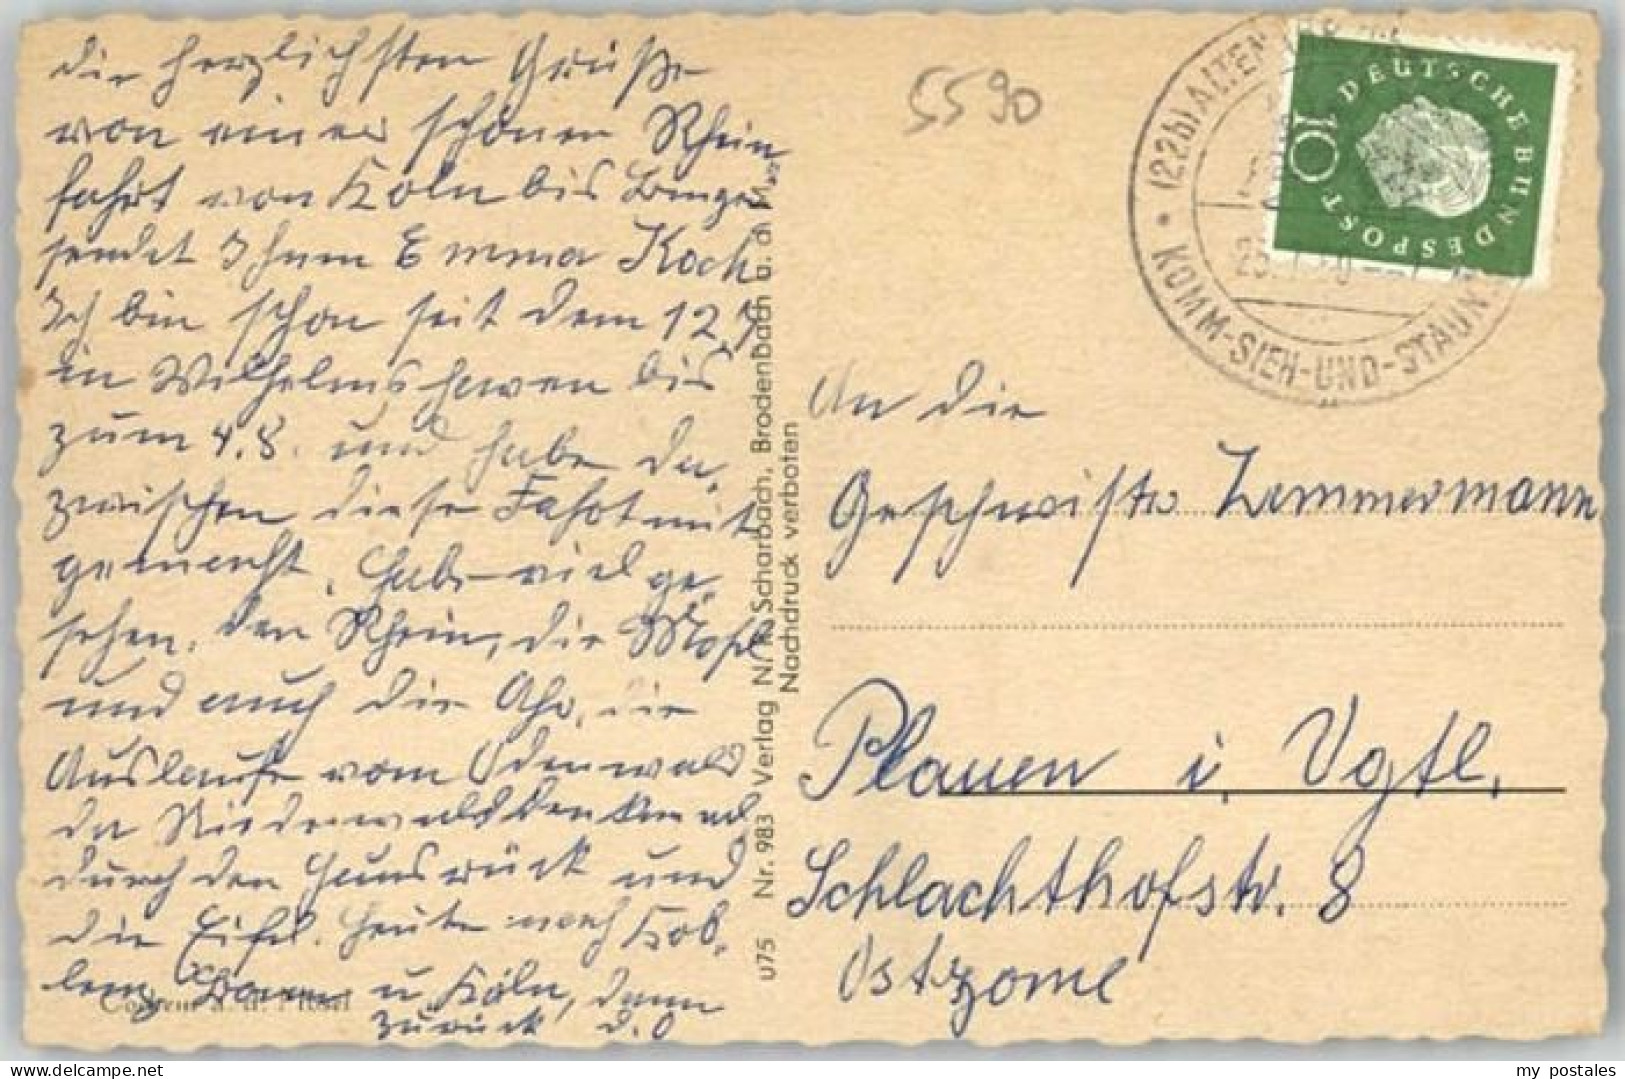 die herzlichsten Grüße
von einer schönen Rhein
fahrt von Köln bis Bingen
sendet Ihnen Emma Koch
Ich bin schon seit dem 12.7.
in Wilhelmshaven bis
zum 4.8. und habe da,
zwischen diese Fahrt mit
gemacht, habe viel ge,
sehen, den Rhein, die Mosel
und auch die Ahr, die
Ausläufe vom Odenwald
da Niederwalddenkmal
durch den Hunsrück und
die Eifel. Heute noch Kob,
lenz, Bonn u Köln, dann
zurück d. O
Cochem a. d. Mosel
u75 Nr. 983 Verlag Scharbach, Brodenbach a. d. Mosel
Nachdruck verboten
5590
(22b) ALTEN
KOMM-SIEH-UND-STAUN
DEUTSCHE BUNDESPOST
10
An die
Geschwister Zimmermann
Plauen i, Vgtl,
Schlachthofstr. 8
Ostzone
my postales